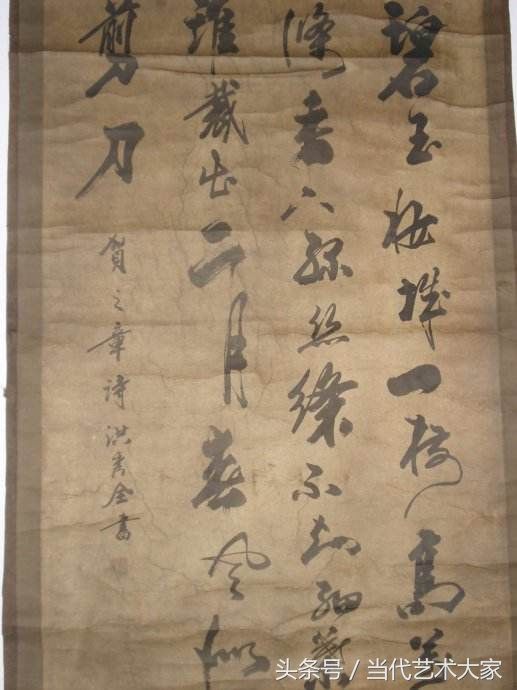 碧玉粧城一樹高萬
條垂下綠絲絛不知細葉
誰裁出二月春風似
剪刀
賀之章诗洪秀全書
头条号 / 当代艺术大家